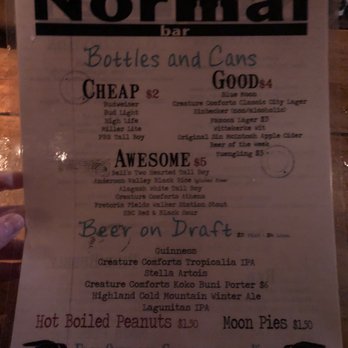 Normal
bar
Bottles and Cans
CHEAP $2
Budweiser
Bud Light
High Life
Miller Lite
PBR Tall Boy
GOOD $4
Blue Moon
Creature Comforts Classic City Lager
Einbecker (non/alcoholic)
Lager $3
Wittekerke Wit
Original Sin McIntosh Apple Cider
Beer of the Week
Yuengling $3
AWESOME $5
Bell's Two Hearted Tall Boy
Anderson Valley Black Rice
Alagash White Tall Boy
Creature Comforts Athena
Pretoria Fields Walker Station Stout
Red & Black Sour
Beer on Draft
Guinness
Creature Comforts Tropicalia IPA
Stella Artois
Creature Comforts Koko Buni Porter $6
Highland Cold Mountain Winter Ale
Lagunitas IPA
Hot Boiled Peanuts $1.50
Moon Pies $1.50